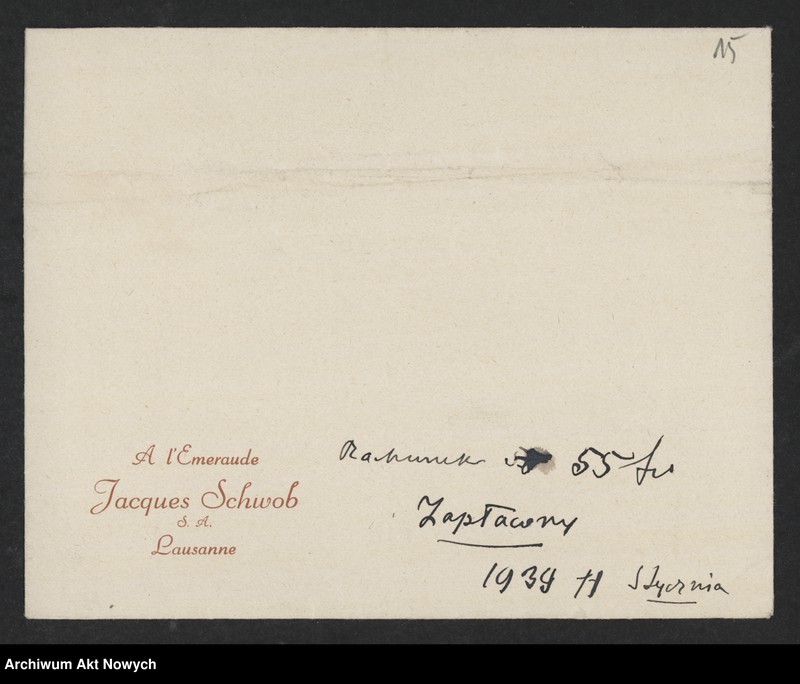 15
A l'Emeraude
Jacques Schwob
S. A.
Lausanne
Rachunek 55 fr
Zapłacony
1939 11 Stycznia
Archiwum Akt Nowych